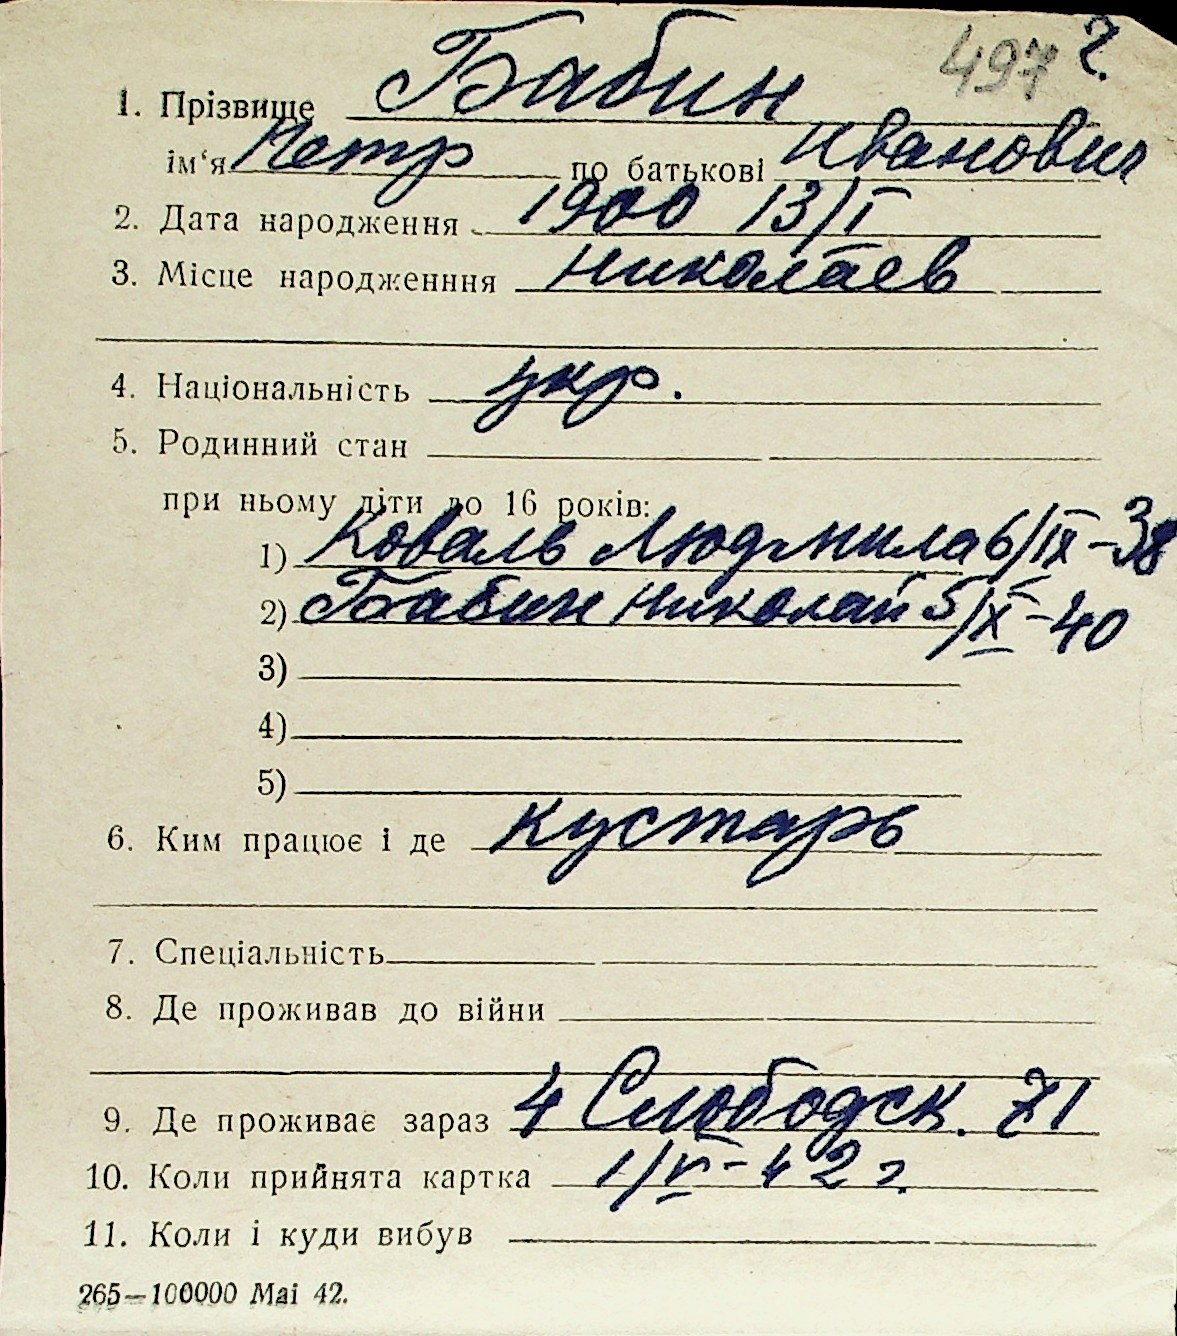 497 г.
1. Прізвище Бабин
ім‘я Петр по батькові Иванович
2. Дата народження 1900 13/I
3. Місце народженння Николаев
4. Національність укр.
5. Родинний стан
при ньому діти до 16 років:
1) Коваль Людмила 6/IX-38
2) Бабин Николай 5/X-40
3)
4)
5)
6. Ким працює і де Кустарь
7. Спеціальність
8. Де проживав до війни
9. Де проживає зараз 4 Слободск. 71
10. Коли прийнята картка 1/V-42 г.
11. Коли і куди вибув
265—100000 Mai 42.